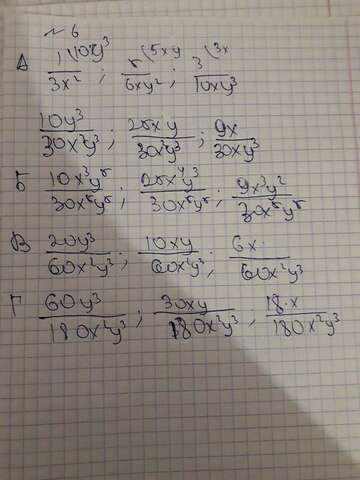 № 6
А 1(10y³ / 3x² ; 5(5xy / 6xy² ; 3(3x / 10xy³
10y³ / 30x²y³ ; 25xy / 30x²y³ ; 9x / 30xy³
Б 10x³y⁵ / 30x⁵y⁵ ; 25x⁴y³ / 30x⁵y⁵ ; 9x³y² / 30x⁵y⁵
В 20y³ / 60x²y³ ; 10xy / 60x²y³ ; 6x / 60x²y³
Г 60y³ / 180x²y³ ; 30xy / 180x²y³ ; 18x / 180x²y³